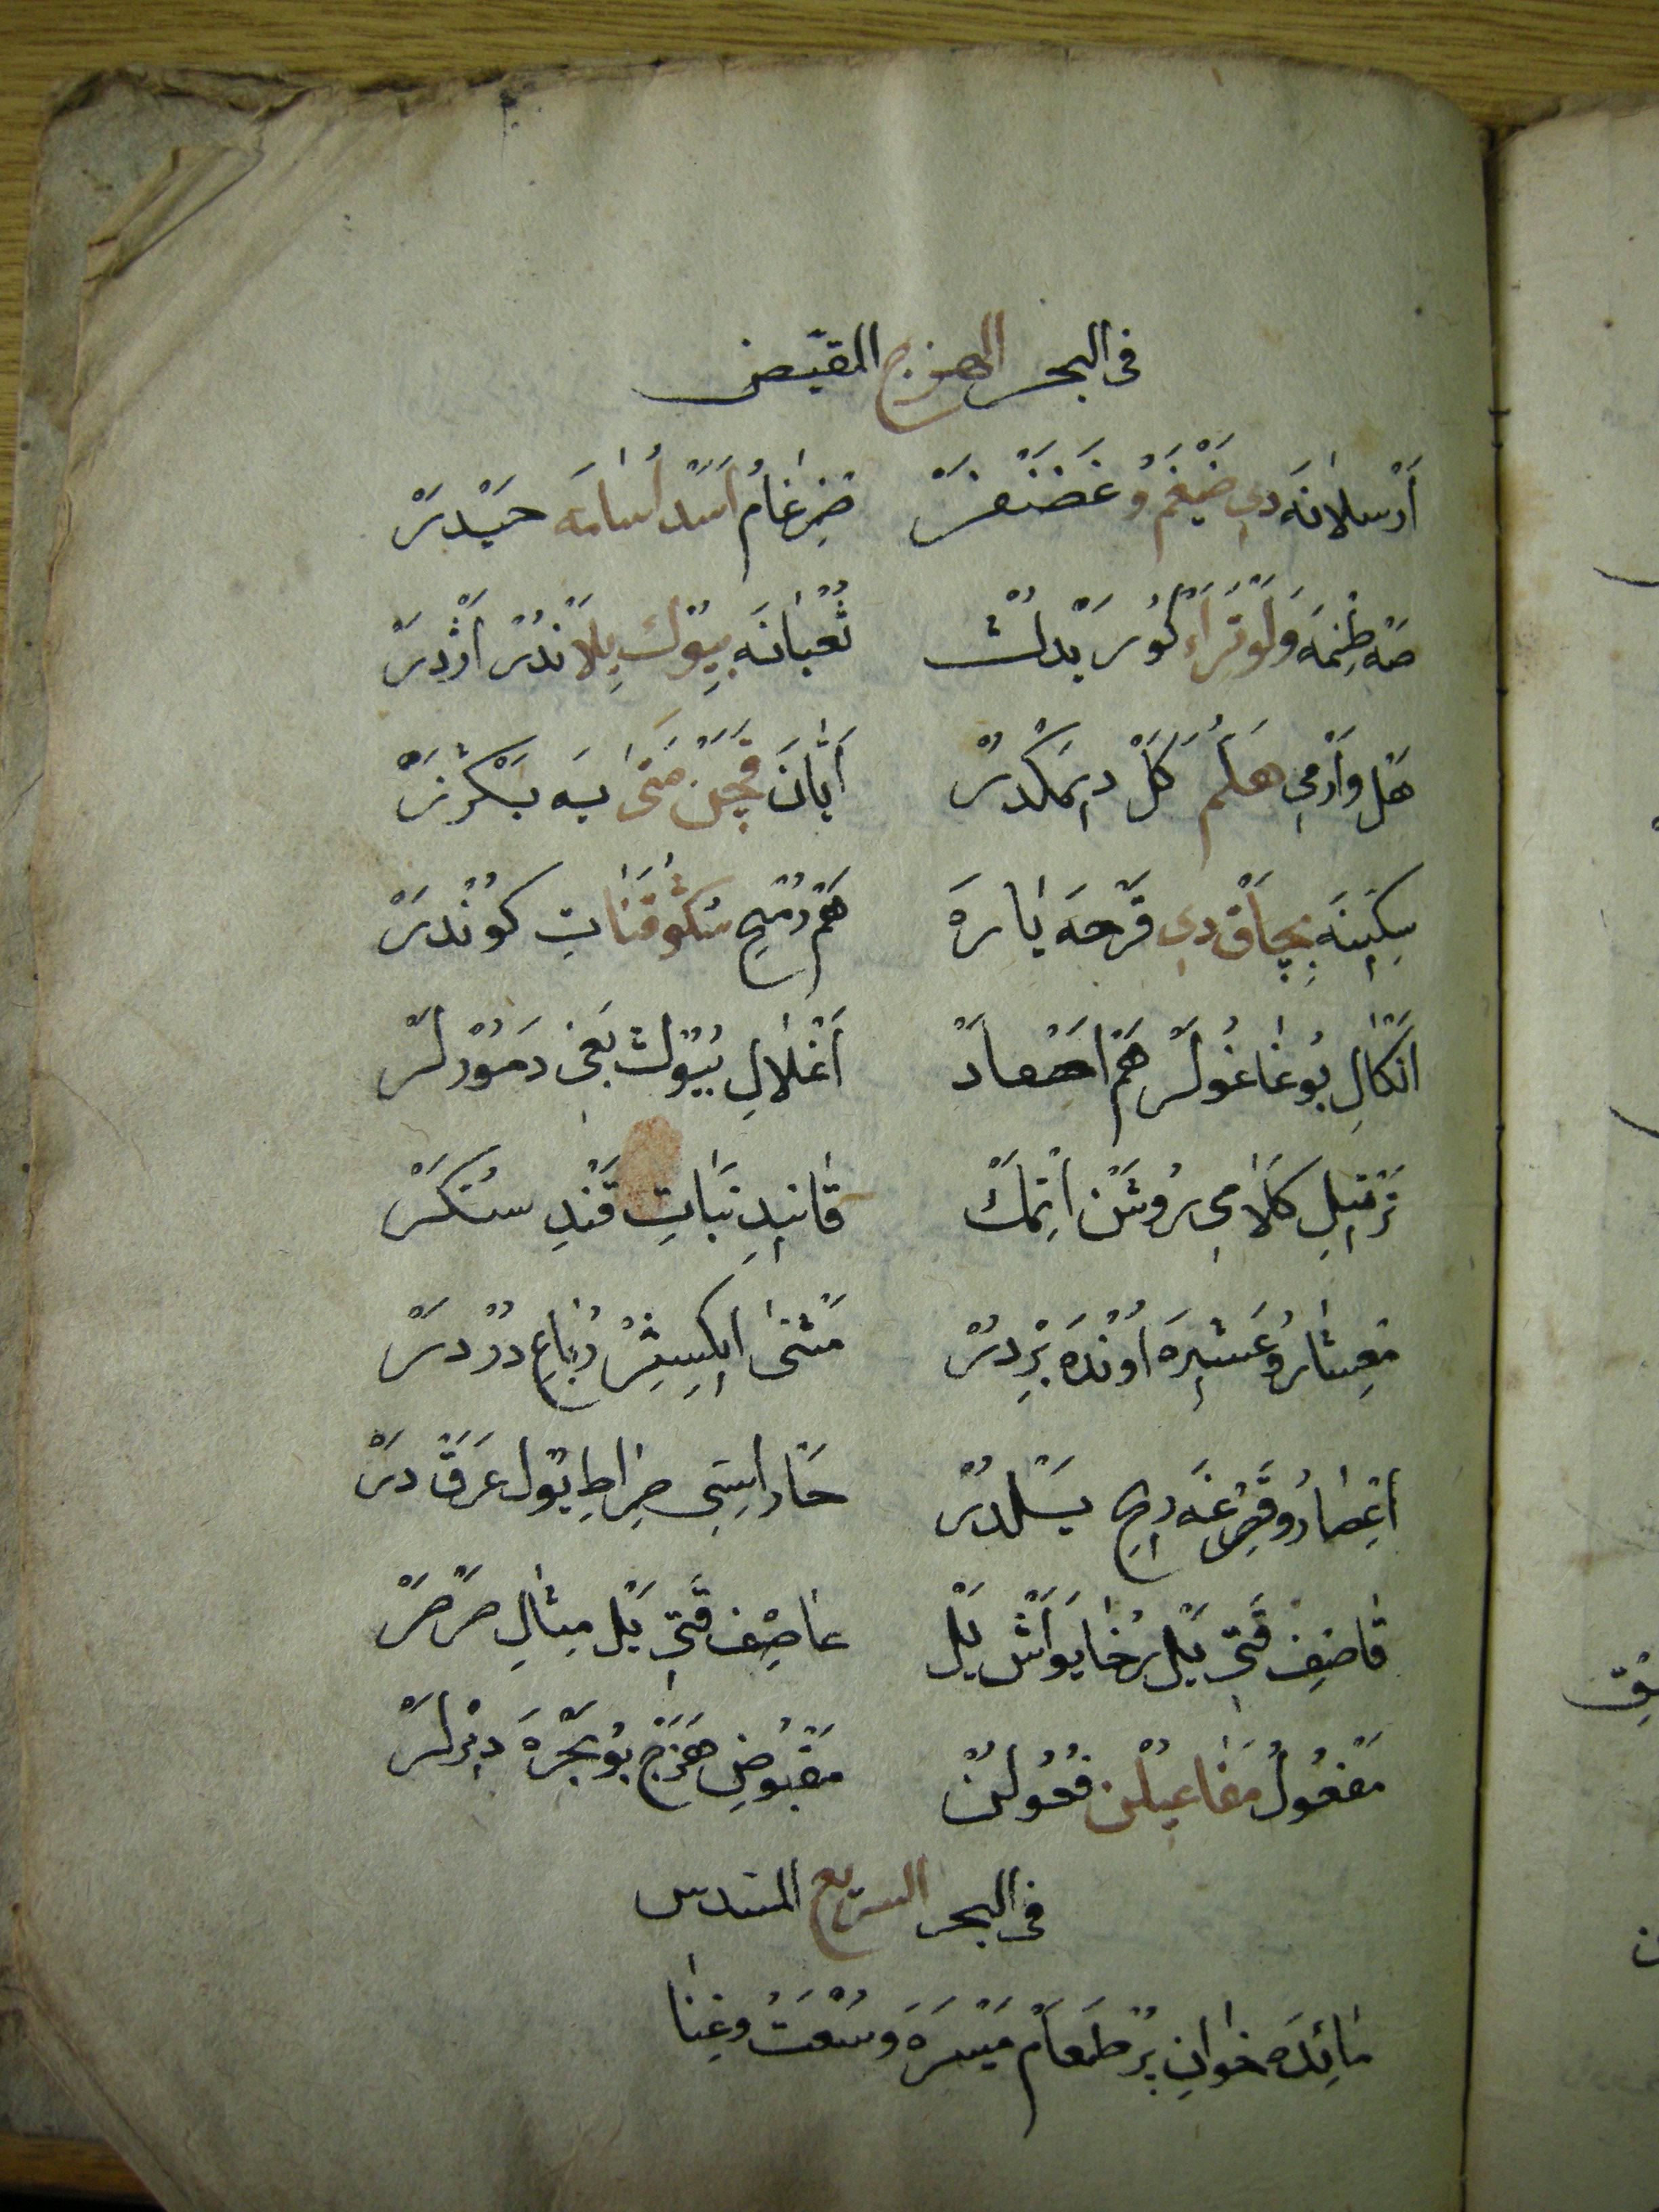 فى البحر الهزج المقبض
أَرْسلانَه دى ضَيْغَمُ و غَضَنْفَرْ ضِرغامُ اَسَد اُسَامَه حَيْدَرْ
صَه وَلَوْ تَرَاءْ ثُعْبَانَه بِيوُك يِلَانْدُرْ اَژْدَرْ
هَل وَارْمِى هَلُمَّ كَلْ دِيمَكْدُرْ اَيَّانَ قَچَنْ مَتَى يَه بَكْزَرْ
سِكِّينَه بِچَاقْ دى قَرْحَه يَارَه هَمْ رُمْحِ سُكُو قَنَاتِ كوُنْدَرْ
اَنْكَالِ بُوغَاغُولَرْ هَمْ اَصْفَادْ اَغْلَالِ بُيُوك بَغِى دَمُوْرلَرْ
تَرْتِيلِ كَلَامِى رُوشَنْ اِتْمَكْ قَانِيدِ نَبَاتِ قَنْدِ سُكَّرْ
مِعْشَارُ و عَشِيرَه اوُنْدَه بِرْدُرْ مَثْنَى اِيكِيشِرْ رُبَاعِ دُرْدَرْ
اِعْصَارُ و رِيحِ يَلْدُرْ صِرَاطِ يوُل عَرَقْ دَرْ
قَاصِفْ قَتِى يَلْ رُخَا يَوَاشْ يَلْ عَاصِفْ قَتِى يَلْ مِثَالِ صَرْصَرْ
مَفْعُولُ مَفَاعِيلُنْ فَعُولُنْ مَقْبُوضِ هَزَجْ بُو بَحْرَه دِيرْلَرْ
فى البحر السريع المسدس
مَائِدَه خوَانِ پُرْ طَعَامْ مَيْسَرَه وُسْعَتُ و غِنَا